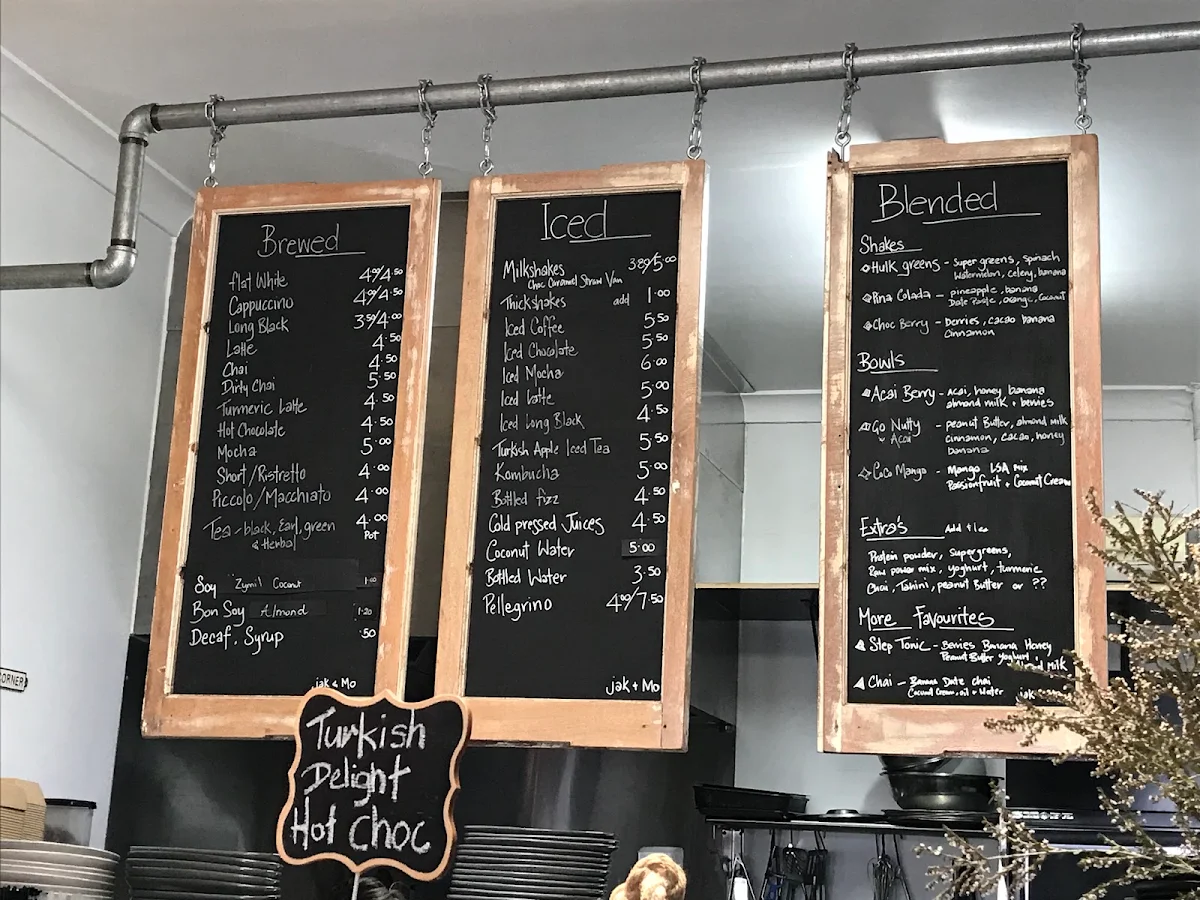 Brewed
flat White 4.00/4.50
Cappuccino 4.00/4.50
Long Black 3.50/4.00
Latte 4.50
Chai 4.50
Dirty Chai 5.50
Turmeric Latte 4.50
Hot Chocolate 4.50
Mocha 5.00
Short/Ristretto 4.00
Piccolo/Macchiato 4.00
Tea - black, Earl, green 4.00
& Herbal Pot
Soy Zymil Coconut 1.00
Bon Soy Almond 1.20
Decaf. Syrup .50
jak & Mo
Iced
Milkshakes 3.80/5.00
Choc Caramel Straw Van
Thickshakes add 1.00
Iced Coffee 5.50
Iced Chocolate 5.50
Iced Mocha 6.00
Iced Latte 5.00
Iced Long Black 4.50
Turkish Apple Iced Tea 5.50
Kombucha 5.00
Bottled fizz 4.50
Cold pressed Juices 4.50
Coconut Water 5.00
Bottled Water 3.50
Pellegrino 4.00/7.50
jak + Mo
Blended
Shakes
Hulk greens - super greens, spinach
Watermelon, celery, banana
Pina Colada - pineapple, banana
Date Paste, orange, coconut
Choc Berry - berries, cacao banana
cinnamon
Bowls
Acai Berry - acai, honey, banana
almond milk + berries
Go Nutty - peanut Butter, almond milk
Acai cinnamon, cacao, honey
banana
CoCo Mango - Mango LSA mix
Passionfruit + Coconut Cream
Extra's Add
Protein powder, Supergreens,
Raw power mix, yoghurt, turmeric
Chai, Tahini, peanut Butter or ??
More Favourites
Step Tonic - Berries Banana Honey
Peanut Butter Yoghurt Milk
Chai - Banana Date chai
Coconut Cream, oil + Water
jak
Turkish
Delight
Hot Choc
CORNER